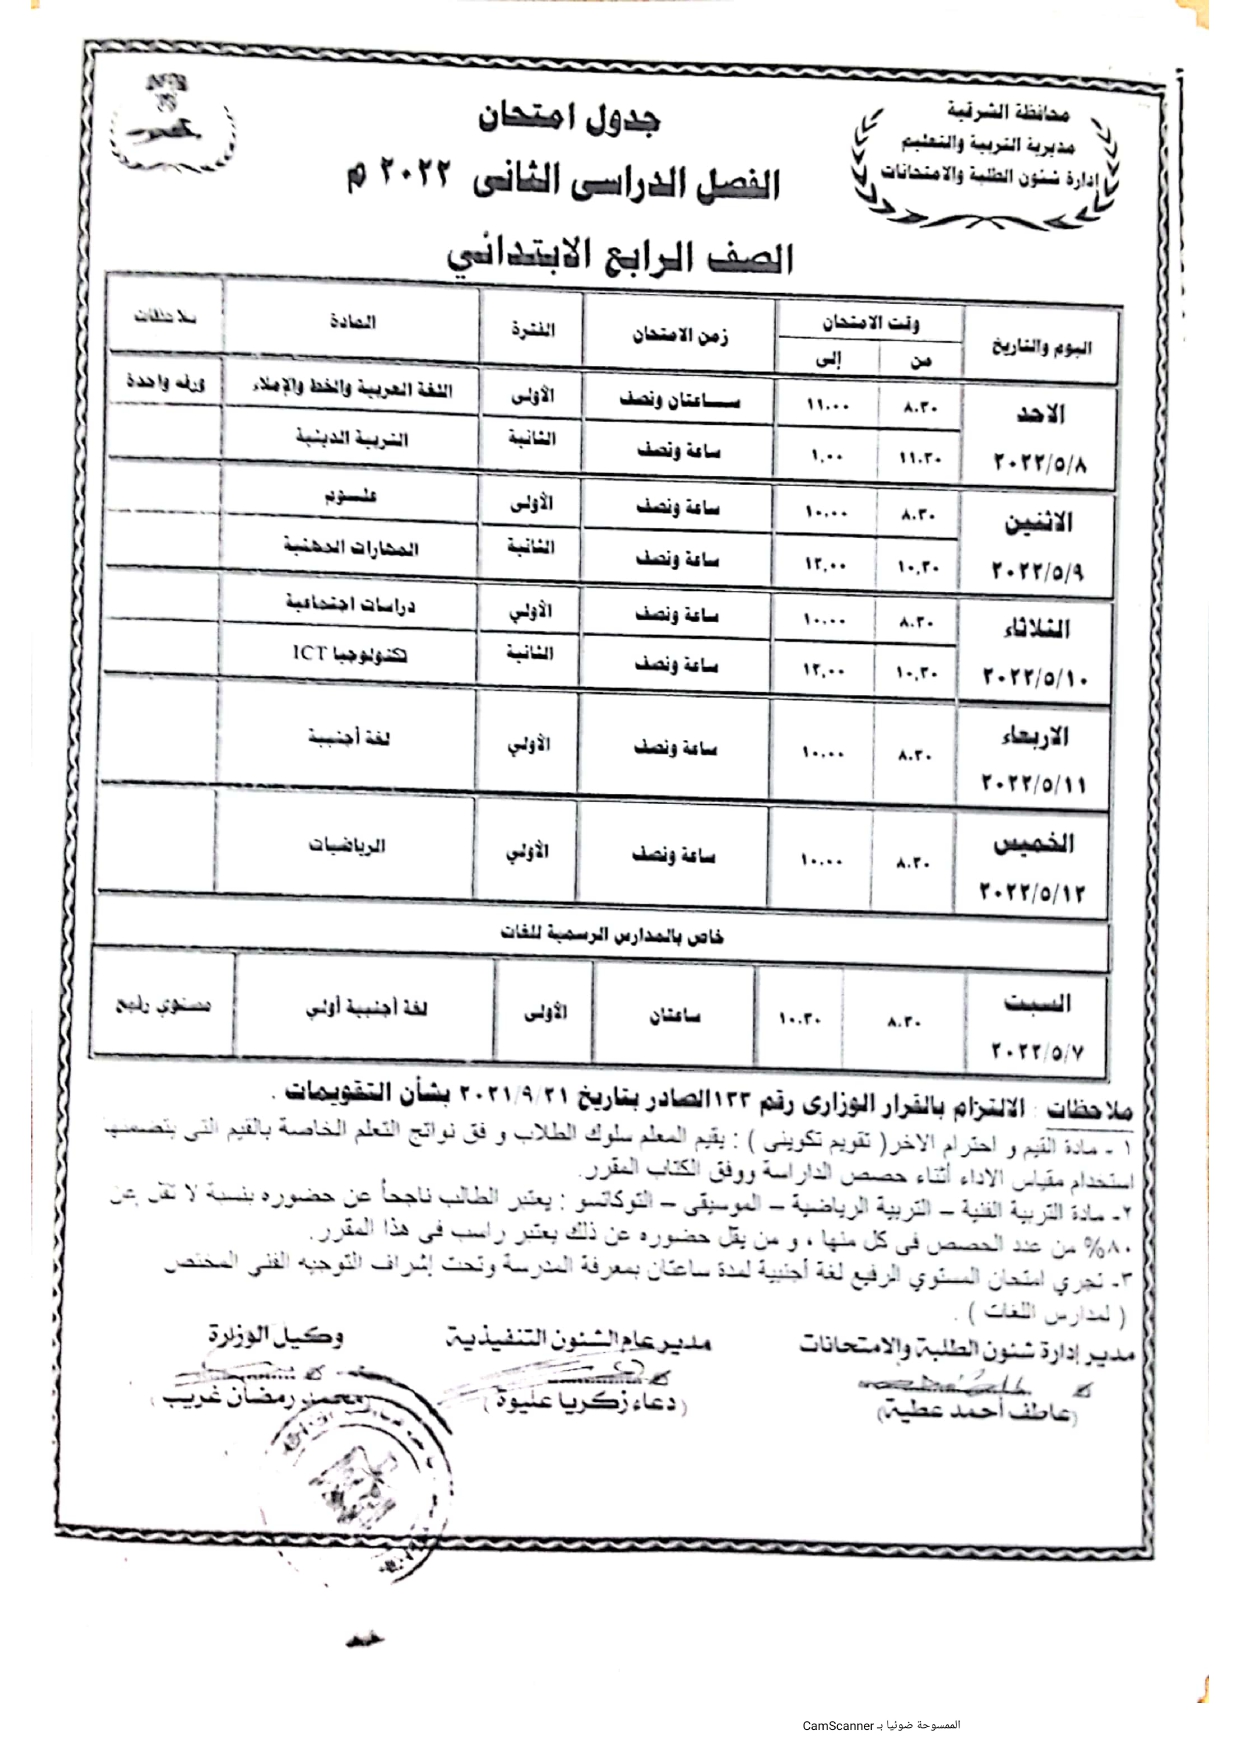 محافظة الشرقية
مديرية التربية والتعليم
إدارة شئون الطلبة والامتحانات
جدول امتحان
الفصل الدراسى الثانى ٢٠٢٢ م
الصف الرابع الابتدائي
اليوم والتاريخ وقت الامتحان زمن الامتحان الفترة المادة ملاحظات
من إلى
الاحد ٨.٣٠ ١١.٠٠ ساعتان ونصف الأولى اللغة العربية والخط والإملاء ورقه واحدة
٢٠٢٢/٥/٨ ١١.٣٠ ١.٠٠ ساعة ونصف الثانية التربية الدينية
الاثنين ٨.٣٠ ١٠.٠٠ ساعة ونصف الأولى علوم
٢٠٢٢/٥/٩ ١٠.٣٠ ١٢.٠٠ ساعة ونصف الثانية المهارات المهنية
الثلاثاء ٨.٣٠ ١٠.٠٠ ساعة ونصف الأولي دراسات اجتماعية
٢٠٢٢/٥/١٠ ١٠.٣٠ ١٢.٠٠ ساعة ونصف الثانية تكنولوجيا ICT
الاربعاء ٨.٣٠ ١٠.٠٠ ساعة ونصف الأولي لغة أجنبية
٢٠٢٢/٥/١١
الخميس ٨.٣٠ ١٠.٠٠ ساعة ونصف الأولي الرياضيات
٢٠٢٢/٥/١٢
خاص بالمدارس الرسمية للغات
السبت ٨.٣٠ ١٠.٣٠ ساعتان الأولى لغة أجنبية أولي مستوي رفيع
٢٠٢٢/٥/٧
ملاحظات : الالتزام بالقرار الوزارى رقم ١٢٢الصادر بتاريخ ٢٠٢١/٩/٢١ بشأن التقويمات .
١ - مادة القيم و احترام الاخر( تقويم تكوينى ) : يقيم المعلم سلوك الطلاب و فق نواتج التعلم الخاصة بالقيم التى يتضمنها
استخدام مقياس الاداء أثناء حصص الداراسة ووفق الكتاب المقرر.
٢- مادة التربية الفنية – التربية الرياضية – الموسيقى – التوكاتسو : يعتبر الطالب ناجحاً عن حضوره بنسبة لا تقل عن
٨٠% من عدد الحصص فى كل منها ، و من يقل حضوره عن ذلك يعتبر راسب فى هذا المقرر.
٣- تجري امتحان المستوي الرفيع لغة أجنبية لمدة ساعتان بمعرفة المدرسة وتحت إشراف التوجيه الفني المختص
( لمدارس اللغات ) .
مدير إدارة شئون الطلبة والامتحانات مدير عام الشئون التنفيذية وكيل الوزارة
(عاطف أحمد عطية) (دعاء زكريا عليوة) (محمد رمضان غريب)
الممسوحة ضوئيا بـ CamScanner